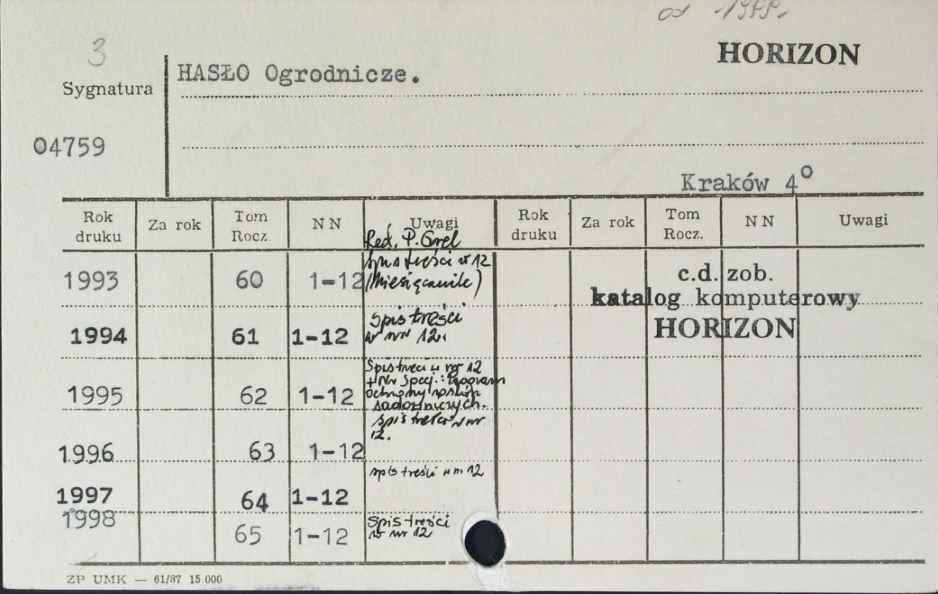 od 1999.
3
HORIZON
Sygnatura
HASŁO Ogrodnicze.
04759
Kraków 4°
Rok druku Za rok Tom Rocz. NN Uwagi Rok druku Za rok Tom Rocz. NN Uwagi
Red. P. Grel
1993 60 1-12 spis treści w 12
(miesięcznik)
c.d. zob.
katalog komputerowy
HORIZON
1994 61 1-12 spis treści
w nr 12.
1995 62 1-12 Spis treści w nr 12
+ Nr Spec.: Program
ochrony roślin
sadowniczych.
1996 63 1-12 spis treści w nr
12.
1997 64 1-12 spis treści w nr 12
1998 65 1-12 Spis treści
w nr 12
ZP UMK — 61/87 15.000